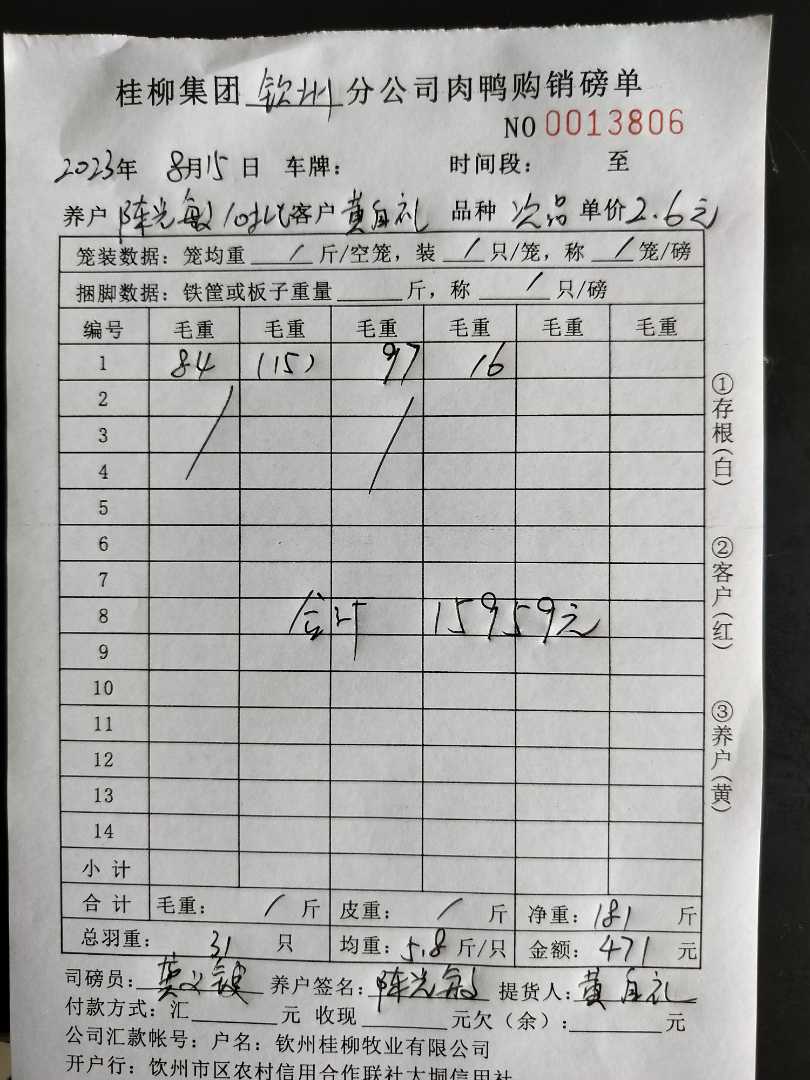 桂柳集团 钦州 分公司肉鸭购销磅单
NO 0013806
2023年 8月15日 车牌： 时间段： 至
养户 陈光敏 10批 客户 黄自礼 品种 次品 单价2.6元
笼装数据：笼均重 / 斤/空笼，装 / 只/笼，称 / 笼/磅
捆脚数据：铁筐或板子重量 斤，称 / 只/磅
编号 毛重 毛重 毛重 毛重 毛重 毛重
1 84 (15) 97 16
2
3
4
5
6
7
8 合计 15959元
9
10
11
12
13
14
小计
合计 毛重： / 斤 皮重： / 斤 净重：181 斤
总羽重： 31 只 均重：5.8 斤/只 金额：471 元
司磅员： 养户签名：陈光敏 提货人：黄自礼
付款方式：汇 元 收现 元欠（余）： 元
公司汇款帐号：户名：钦州桂柳牧业有限公司
开户行：钦州市区农村信用合作联社大垌信用社
①存根（白）
②客户（红）
③养户（黄）